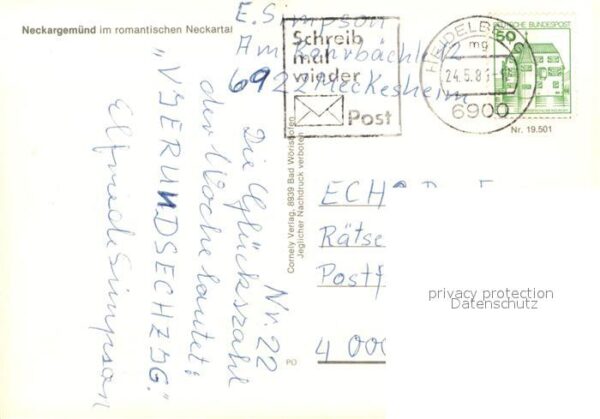 Neckargemünd im romantischen Neckartal
E. Simpson
Am Rohrbächle 12
6922 Meckesheim
Schreib
mal
wieder
Post
HEIDELB
mg
24.5.8
6900
DEUTSCHE BUNDESPOST
50
Nr. 19.501
Nr. 22
Die Glückszahl
der Woche lautet:
"VIERUNDSECHZIG."
Elfriede Simpson
Cornely Verlag, 8939 Bad Wörishofen
Jeglicher Nachdruck verboten
PO
ECHO
Rätse
Postf
4 000
privacy protection
Datenschutz